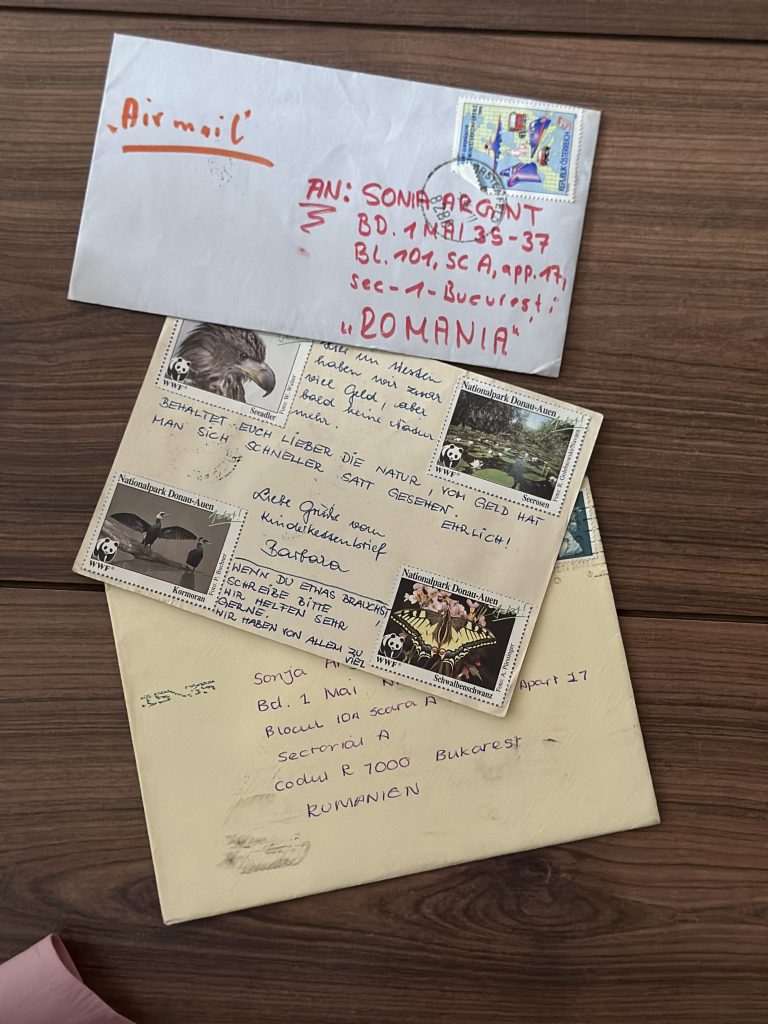 „Airmail"
REPUBLIK ÖSTERREICH
8280
AN: SONIA ARGINT
BD. 1 MAI 35-37
BL. 101, SC A, app. 17,
sec-1-București
„ROMANIA"
WWF
Seeadler
im Westen
haben wir zwar
viel Geld, aber
bald keine Natur
mehr.
Nationalpark Donau-Auen
WWF
Seerosen
BEHALTET EUCH LIEBER DIE NATUR, VOM GELD HAT
MAN SICH SCHNELLER SATT GESEHEN. EHRLICH!
Nationalpark Donau-Auen
WWF
Kormoran
Liebe Grüße vom
Kinderkessenbrief
Barbara
WENN DU ETWAS BRAUCHST,
SCHREIBE BITTE
WIR HELFEN SEHR
GERNE.
WIR HABEN VON ALLEM ZU
VIEL
Nationalpark Donau-Auen
WWF
Schwalbenschwanz
Sonja
Bd. 1 Mai Apart 17
Blocul 10A Scara A
Sectorial A
Codul R 7000 Bukarest
RUMÄNIEN